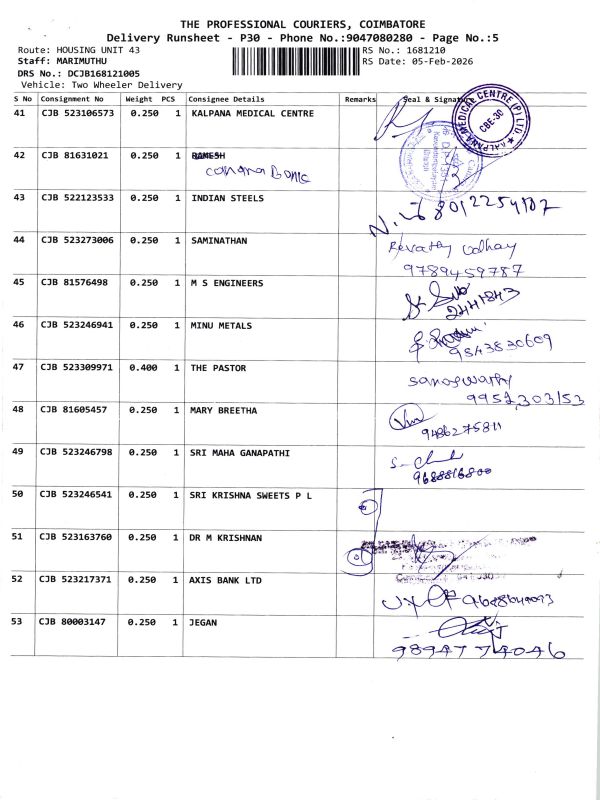 THE PROFESSIONAL COURIERS, COIMBATORE
Delivery Runsheet - P30 - Phone No.:9047080280 - Page No.:5
Route: HOUSING UNIT 43 RS No.: 1681210
Staff: MARIMUTHU RS Date: 05-Feb-2026
DRS No.: DCJB168121005
Vehicle: Two Wheeler Delivery
S No Consignment No Weight PCS Consignee Details Remarks Seal & Signature
41 CJB 523106573 0.250 1 KALPANA MEDICAL CENTRE
KALPANA MEDICAL CENTRE (P) LTD. CBE-30
42 CJB 81631021 0.250 1 RAMESH
canara Bank
43 CJB 522123533 0.250 1 INDIAN STEELS
44 CJB 523273006 0.250 1 SAMINATHAN Revathy
9789459787
45 CJB 81576498 0.250 1 M S ENGINEERS
2441843
46 CJB 523246941 0.250 1 MINU METALS
9543830609
47 CJB 523309971 0.400 1 THE PASTOR
9952303153
48 CJB 81605457 0.250 1 MARY BREETHA
9486275811
49 CJB 523246798 0.250 1 SRI MAHA GANAPATHI
9688816800
50 CJB 523246541 0.250 1 SRI KRISHNA SWEETS P L
51 CJB 523163760 0.250 1 DR M KRISHNAN
52 CJB 523217371 0.250 1 AXIS BANK LTD
53 CJB 80003147 0.250 1 JEGAN
9894774046